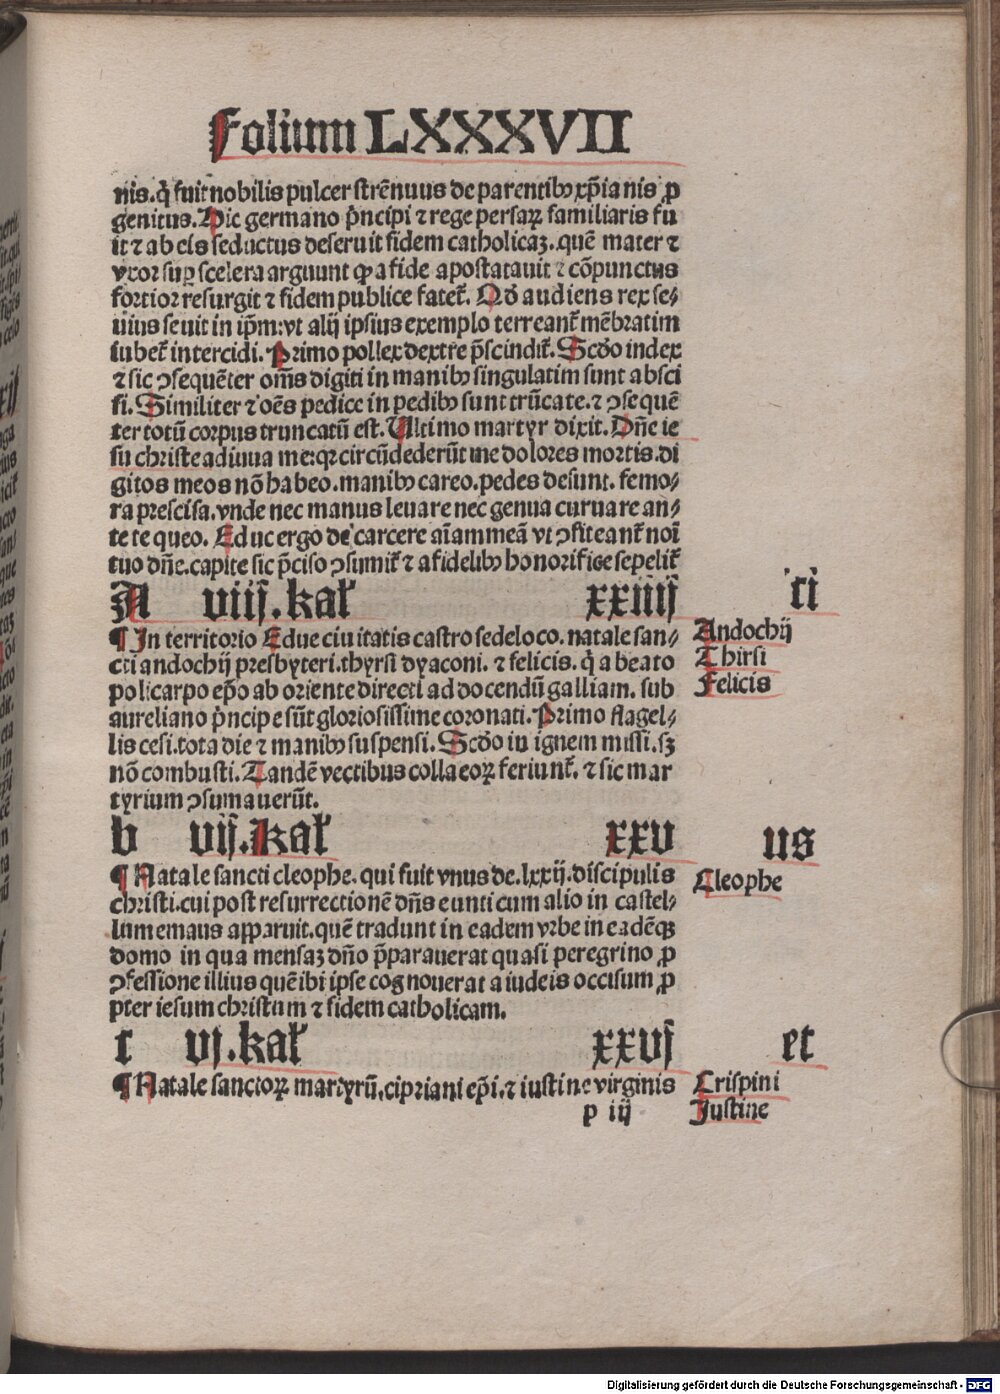 Folium LXXXVII
nis. q̇ fuit nobilis pulcer strēnuus de parentibꝰ xp̄ianis ꝓ
genitus. Hic germano p̄ncipi ⁊ rege persaꝝ familiaris fu
it ⁊ ab eis seductus deseruit fidem catholicaꝫ. quē mater ⁊
vxor suꝑ scelera arguunt ꝙ a fide apostatauit ⁊ cōpunctus
fortior resurgit ⁊ fidem publice fateť. Qd̄ audiens rex se⸗
uius seuit in ip̄m: vt alij ipsius exemplo terreanť mēbratim
iubeť intercidi. Primo pollex dextre p̄scindiť. Scd̄o index
⁊ sic ꝯsequēter om̄s digiti in manibꝰ singulatim sunt absci
si. Similiter ⁊ oēs pedice in pedibꝰ sunt trūcate. ⁊ ꝯsequē
ter totū corpus truncatū est. Ultimo martyr dixit. Dn̄e ie
su christe adiuua me: qꝛ circūdederūt me dolores mortis. di
gitos meos nō habeo. manibꝰ careo. pedes desunt. femo⸗
ra prescisa. vnde nec manus leuare nec genua curuare an⸗
te te queo. Educ ergo de carcere aīam meā vt ꝯfiteanť noī
tuo dn̄e. capite sic p̄ciso ꝯsumiť ⁊ a fidelibꝰ honorifice sepeliť
A viij. kał xxiiij ti
¶ In territorio Edue ciuitatis castro sedeloco. natale san⸗
cti andochij presbyteri. thyrsi dyaconi. ⁊ felicis. q̇ a beato
policarpo ep̄o ab oriente directi ad docendū galliam. sub
aureliano p̄ncipe sūt gloriosissime coronati. Primo flagel⸗
lis cesi. tota die ⁊ manibꝰ suspensi. Scd̄o in ignem missi. sꝫ
nō combusti. Tandē vectibus colla eoꝝ feriunť. ⁊ sic mar
tyrium ꝯsumauerūt.
Andochij
Thirsi
Felicis
b vij. kał xxv us
¶ Natale sancti cleophe. qui fuit vnus de. lxxij. discipulis
christi. cui post resurrectionē dn̄s eunti cum alio in castel⸗
lum emaus apparuit. quē tradunt in eadem vrbe in eadēqꝫ
domo in qua mensaꝫ dn̄o p̄parauerat quasi peregrino ꝓ
ꝯfessione illius quē ibi ipse cognouerat a iudeis occisum ꝓ
pter iesum christum ⁊ fidem catholicam.
Cleophe
c vj. kał xxvj et
¶ Natale sanctoꝝ martyrū. cipriani ep̄i. ⁊ iustine virginis
Crispini
Justine
p iij
Digitalisierung gefördert durch die Deutsche Forschungsgemeinschaft - DFG